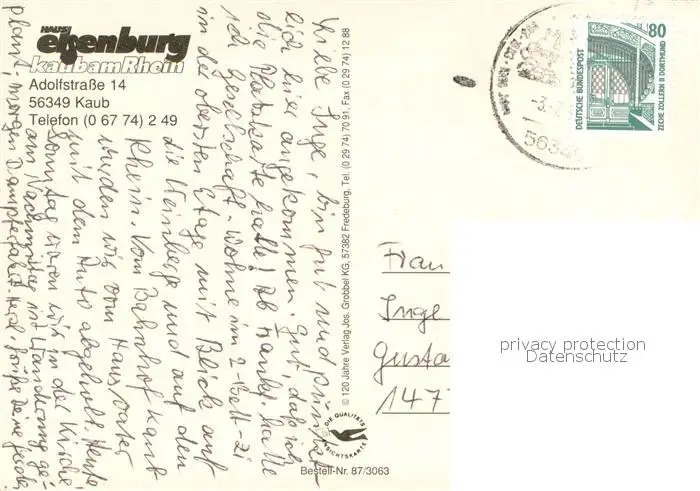 HAUS
elsenburg
kaub am Rhein
Adolfstraße 14
56349 Kaub
Telefon (0 67 74) 2 49
Liebe Inge, bin gut und pünkt-
lich hier angekommen. Gut, daß ich
die Platzkarte hatte! Ab Frankf. hatte
ich Gesellschaft. Wohne im 2-Bett-Zi
in der obersten Etage mit Blick auf
die Weinberge und auf den
Rhein. Vom Bahnhof Kaub
wurden wir vom Hausvater
mit dem Auto abgeholt. Heute
Sonntag waren wir in der Kirche,
am Nachmittag ist Wanderung ge-
plant, morgen Dampferfahrt. Herzl. Grüße Deine
© 120 Jahre Verlag Jos. Grobbel KG, 57382 Fredeburg, Tel. (0 29 74) 70 91, Fax (0 29 74) 12 88
DIE QUALITÄTS
ANSICHTSKARTE
Bestell-Nr. 87/3063
56349
80
DEUTSCHE BUNDESPOST
ZECHE ZOLLERN II DORTMUND
Frau
Inge
Gusta
147
privacy protection
Datenschutz